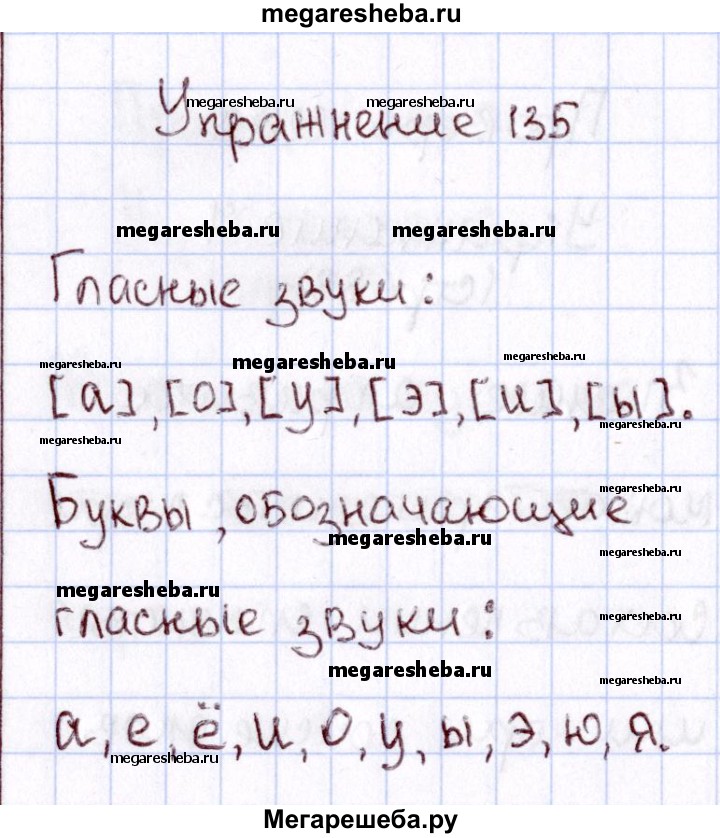 megaresheba.ru
Упражнение 135
megaresheba.ru megaresheba.ru
megaresheba.ru megaresheba.ru
Гласные звуки:
megaresheba.ru megaresheba.ru megaresheba.ru
[а],[о],[у],[э],[и],[ы].
megaresheba.ru megaresheba.ru
megaresheba.ru
Буквы, обозначающие
megaresheba.ru megaresheba.ru
megaresheba.ru
гласные звуки:
megaresheba.ru
megaresheba.ru megaresheba.ru
а, е, ё, и, о, у, ы, э, ю, я.
megaresheba.ru megaresheba.ru
Мегарешеба.ру